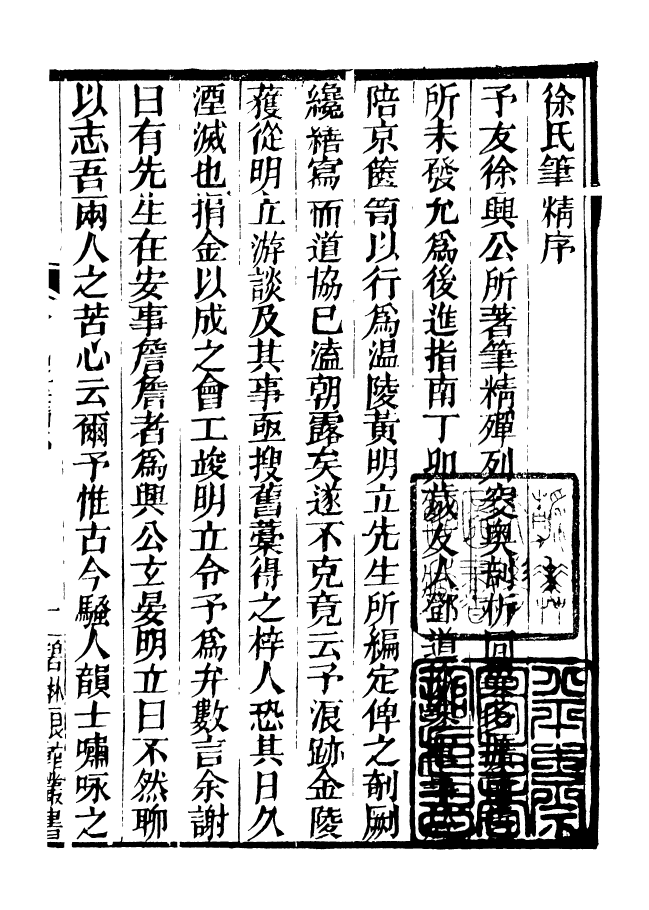 徐氏筆精序
予友徐興公所著筆精殫列窔奥剖析
所未發允爲後進指南丁卯歲友人鄧道
陪京篋笥以行爲温陵黃明立先生所編定俾之剞劂
纔繕寫而道協已溘朝露矣遂不克竟云予浪跡金陵
獲從明立游談及其事亟搜舊藁得之梓人恐其日久
湮滅也捐金以成之會工竣明立令予爲弁數言余謝
曰有先生在安事詹詹者爲興公玄晏明立曰不然聊
以志吾兩人之苦心云爾予惟古今騷人韻士嘯咏之
碧琳琅館叢書